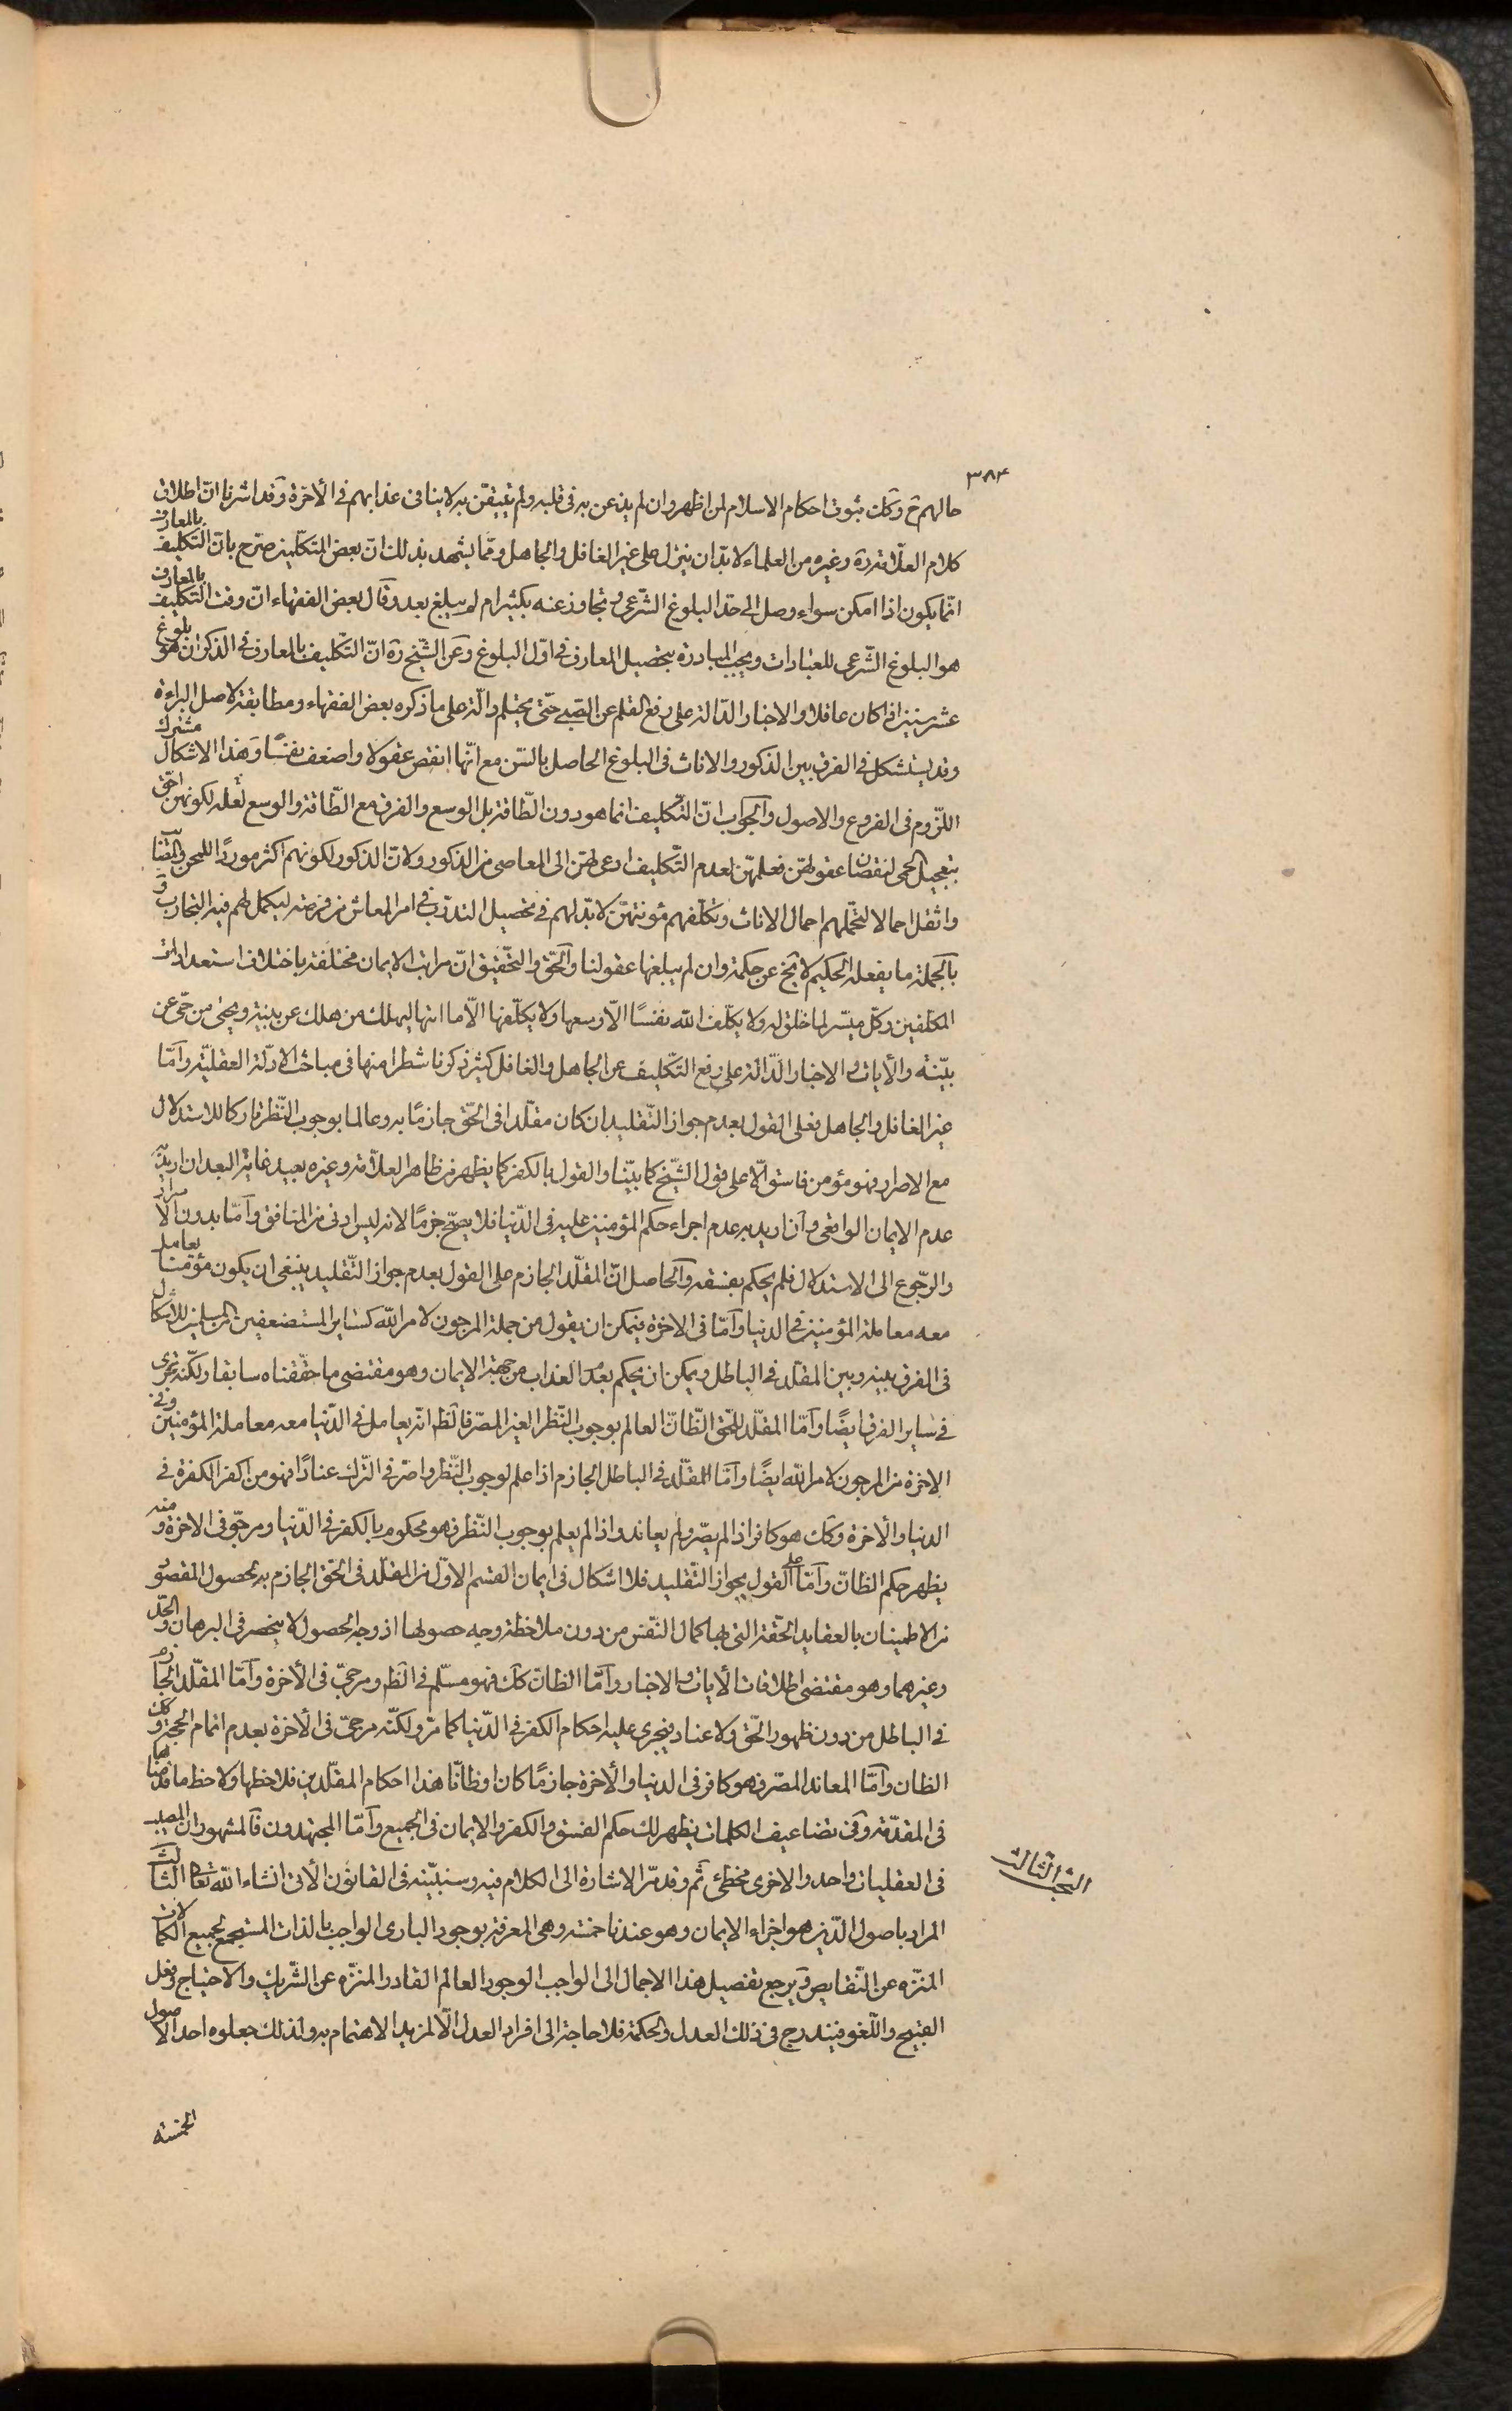 ٣٨٤
حالهم ح وكك ثبوت احكام الاسلام لمن اظهر وان لم يذعن به فى قلبه ولم يتيقّن به لا ينافى عذابهم فى الآخرة وقد اشرنا انّ اطلاق
كلام العلّامة ره وغيره من العلماء لا بدّ ان ينزل على غير الغافل والجاهل وممّا يشهد بذلك انّ بعض المتكلّمين صرّح بانّ التكليف بالمعارف
انّما يكون اذا امكن سواء وصل الى حدّ البلوغ الشّرعى وتجاوز عنه بكثير ام لم يبلغ بعد وقال بعض الفقهاء انّ وقت التكليف بالمعارف
هو البلوغ الشّرعى للعبادات ويجب المبادرة بتحصيل المعارف فى اوّل البلوغ وعن الشّيخ ره انّ التّكليف بالمعارف فى الذكران هو بلوغ
عشر سنين اذا كان عاقلا والاخبار الدّالة على رفع القلم عن الصّبى حتّى يحتلم دالّة على ما ذكره بعض الفقهاء ومطابقة لاصل البراءة
وقد يستشكل فى الفرق بين الذكور والاناث فى البلوغ الحاصل بالسّن مع انّها انقص عقولا واضعف نفسًا وهذا الاشكال مشترك
اللّزوم فى الفروع والاصول والجواب انّ التّكليف انما هو دون الطّاقة بل الوسع والفرق مع الطّاقة والوسع لعلّه لكونهنّ احق
بتعجيل الحمى لنقصان عقولهنّ فعلمهنّ لعدم التّكليف ادعى لهنّ الى المعاصى من الذكور ولانّ الذكور لكونهم اكثر موردًا للمحن والقضايا
واثقل احمالا لتحمّلهم احمال الاناث وتكلّفهم مؤنتهنّ لا بدّ لهم فى تحصيل التدرّب فى امر المعاش من فرصة ليكمل لهم فيه التجارب و
بالجملة ما يفعله الحكيم لا يخ عن حكمة وان لم يبلغها عقولنا والحقّ والتحقيق انّ مراتب الايمان مختلفة باختلاف استعدادات
المكلّفين وكلّ ميسّر لما خلق له ولا يكلّف الله نفسًا الّا وسعها ولا يكلّفها الّا ما اتيها ليهلك من هلك عن بيّنة ويحيى من حىّ عن
بيّنة والآيات والاخبار الدّالة على رفع التّكليف عن الجاهل والغافل كثير ذكرنا شطرا منها فى مباحث الادلّة العقليّة وامّا
غير الغافل والجاهل فعلى القول بعدم جواز التّقليد ان كان مقلّدا فى الحّق جازمًا به وعالما بوجوب النّظر تاركا للاستدلال
مع الاصرار فهو مؤمن فاسق الّا على قول الشّيخ كما بيّنا والقول بالكفر كما يظهر من ظاهر العلّامة وغيره بعيد غاية البعد ان اريد به
عدم الايمان الواقعى وان اريد به عدم اجراء حكم المؤمنين عليه فى الدّنيا فلا يصحّ جزمًا لانه ليس ادنى من المنافق وامّا بدون الاصرار
والرجوع الى الاستدلال فلم يحكم بفسقه والحاصل انّ المقلّد الجازم على القول بعدم جواز التّقليد ينبغى ان يكون مؤمنا يعامل
معه معاملة المؤمنين فى الدنيا وامّا فى الاخرة فيمكن ان يقول من جملة المرجون لامر الله كساير المستضعفين من المسلمين للاشكال
فى الفرق بينه وبين المقلّد فى الباطل ويمكن ان يحكم بعدم العذاب من جهة الايمان وهو مقتضى ما حقّقناه سابقا ولكنّه يجرى
فى ساير الفرق ايضًا وامّا المقلّد للحّق الظّانّ العالم بوجوب النّظر الغير المصرّ فالظّ انّه يعامل فى الدّنيا معه معاملة المؤمنين وفى
الاخرة من المرجون لامر الله ايضًا وامّا المقلّد فى الباطل الجازم اذا علم لوجوب النّظر واصرّ فى التّرك عنادًا فهو من اكفر الكفرة فى
الدنيا والآخرة وكك هو كافر اذا لم يصرّ ولم يعاند واذا لم يعلم بوجوب النّظر فهو محكوم بالكفر فى الدّنيا ومرجوّ فى الاخرة ومنه
يظهر حكم الظانّ وامّا على القول بجواز التّقليد فلا اشكال فى ايمان القسم الاوّل من المقلّد فى الحّق الجازم به لحصول المقصود
من الاطمينان بالعقايد الحقّة التى بها كمال النّفس من دون ملاحظة وجه حصولها اذ وجه الحصول لا ينحصر فى البرهان والجدل
وغيرهما وهو مقتضى اطلاقات الآيات والاخبار وامّا الظانّ كك فهو مسلّم فى الظّ ومرجىّ فى الآخرة وامّا المقلّد الجازم
فى الباطل من دون ظهور الحّق ولا عناد فيجرى عليه احكام الكفر فى الدّنيا كما مرّ ولكنّه مرجىّ فى الآخرة بعدم اتمام الحجة وكك
الظان وامّا المعاند المصرّ فهو كافر فى الدنيا والآخرة جازمًا كان او ظانّا هذا احكام المقلّدين فلاحظها ولاحظ ما قدّمناها
فى المقدّمة وفى تضاعيف الكلمات يظهر لك حكم الفسق والكفر والايمان فى الجميع وامّا المجتهدون فالمشهور ان المصيب
فى العقليات واحد والاخرى مخطئ آثم وقد مرّ الاشارة الى الكلام فيه وسنبيّنه فى القانون الآتى انشاء الله تعا الثالث
البحث الثالث
المراد باصول الدّين هو اجزاء الايمان وهو عندنا خمسة وهى المعرفة بوجود البارى الواجب بالذات المستجمع لجميع الكمالات
المنزّه عن النّقايص ويرجع تفصيل هذا الاجمال الى الواجب الوجود العالم القادر المنزّه عن الشّريك والاحتياج وفعل
القبيح واللّغو فيندرج فى ذلك العدل والحكمة فلا حاجة الى افراد العدل الّا لمزيد الاهتمام به ولذلك جعلوه احد الاصول
الخمسة